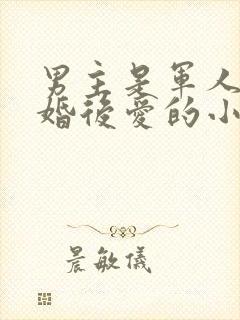 男主是军人
婚後爱的小
晨敏儀